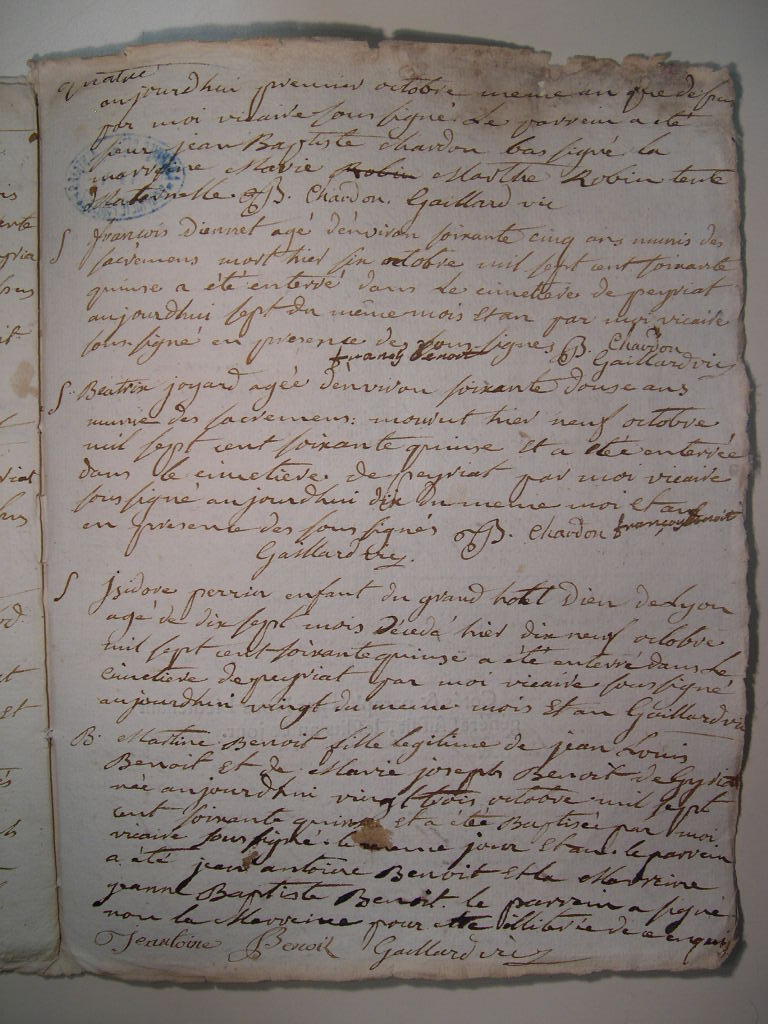 aujourdhui premier octobre meme an que dessus
par moi vicaire sous signé. Le parrein a été
sieur jean Baptiste chardon bas signé la
marreine Marie Robin Marthe Robin tente
Maternelle. JB. Chardon. Gaillard vic
S françois diennet agé d'environ soixante cinq ans munis des
sacremens mort hier six octobre mil sept cent soixante
quinse a été enterré dans le cimetiere de peyriat
aujourdhui sept du même mois et an par moi vicaire
sous signé en presence des sous signés JB. Chardon
françois benoit Gaillard vic
S. Beatrix joyard agée denviron soixante douse ans
munie des sacremens: mourut hier neuf octobre
mil sept cent soixante quinse et a étée enterrée
dans le cimetiere de peyriat par moi vicaire
sous signé aujourdhui dix du meme moi et an
en presence des sous signés JB. Chardon françois benoit
Gaillard vic.
S Isidore perrin enfant du grand hotel Dieu de Lyon
agé de dix sept mois Décedé hier dix neuf octobre
mil sept cent soixante quinse a été enterré dans le
cimetiere de peyriat par moi vicaire sous signé
aujourdhui vingt du meme mois et an Gaillard vic
B. Martine Benoit fille legitime de jean Louis
Benoit et de Marie joseph Benoit de
née aujourdhui vingt trois octobre mil sept
cent soixante quinse et a étée Baptisée par moi
vicaire sous signé le meme jour et an. le parrein
a été jean antoine Benoit et la Marreine
jeanne Baptiste Benoit. le parrein a signé
non la Marreine pour etre illitérée de ce enquis
Jeantoine Benoit Gaillard vic